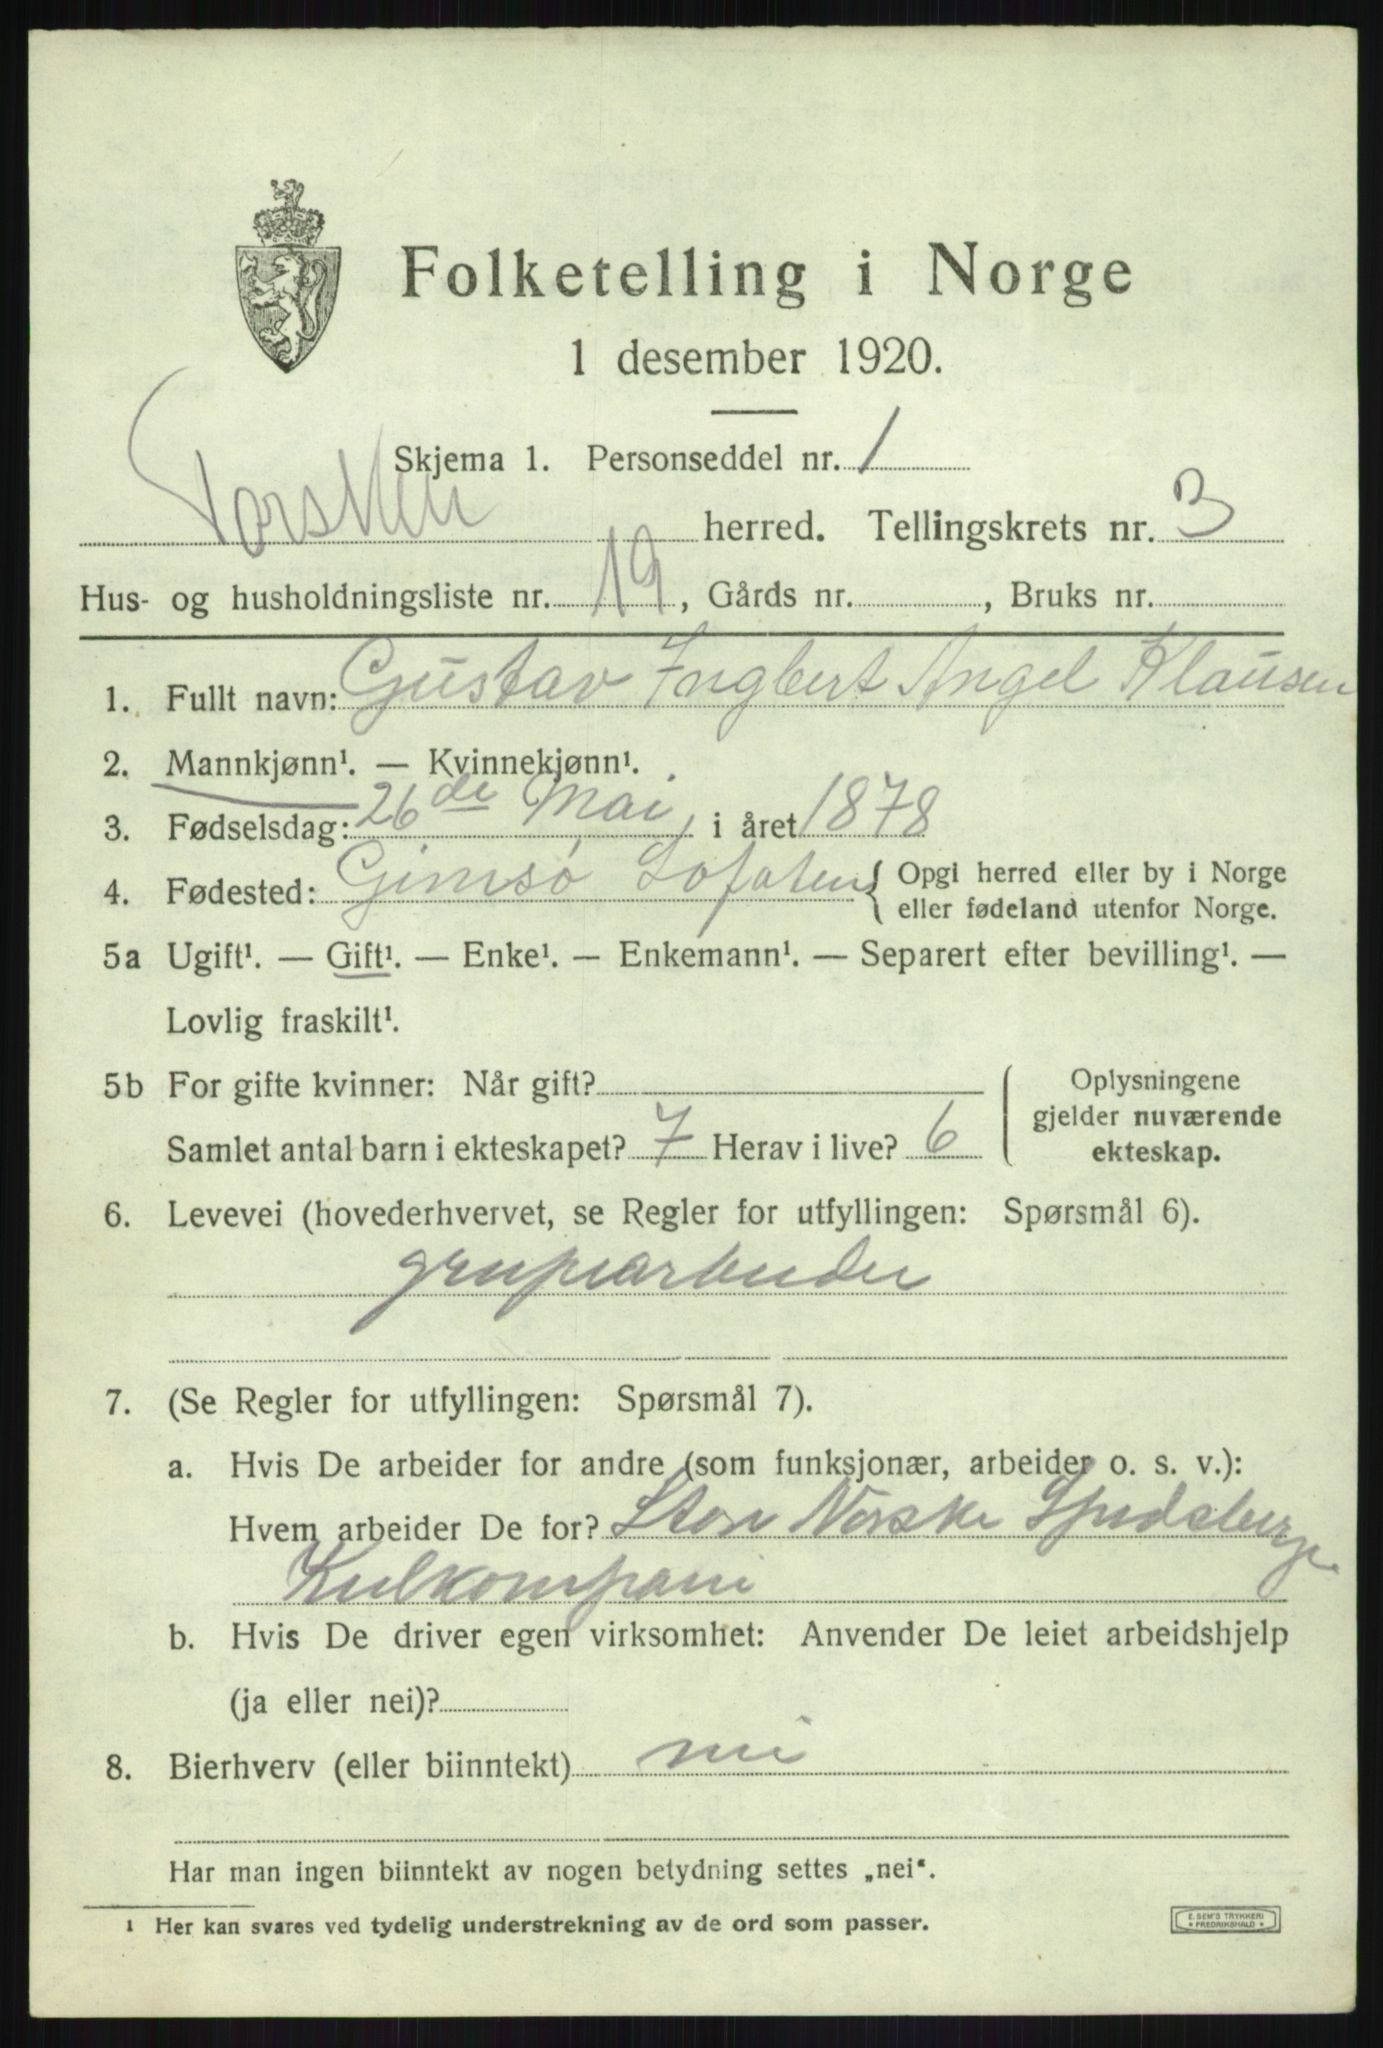 Folketelling i Norge
1 desember 1920.
Skjema 1. Personseddel nr. 1
Torsken herred. Tellingskrets nr. 3
Hus- og husholdningsliste nr. 19, Gårds nr. , Bruks nr.
1. Fullt navn: Gustav Ingbert Angel Klausen
2. Mannkjønn¹. — Kvinnekjønn¹.
3. Fødselsdag: 26de Mai i året 1878
4. Fødested: Gimsø Lofoten { Opgi herred eller by i Norge
eller fødeland utenfor Norge.
5a Ugift¹. — Gift¹. — Enke¹. — Enkemann¹. — Separert efter bevilling¹. —
Lovlig fraskilt¹.
5b For gifte kvinner: Når gift?
Samlet antal barn i ekteskapet? 7 Herav i live? 6
Oplysningene
gjelder nuværende
ekteskap.
6. Levevei (hovederhvervet, se Regler for utfyllingen: Spørsmål 6).
grupearbeider
7. (Se Regler for utfyllingen: Spørsmål 7).
a. Hvis De arbeider for andre (som funksjonær, arbeider o. s. v.):
Hvem arbeider De for? Store Norske Spidsberge
Kulkompani
b. Hvis De driver egen virksomhet: Anvender De leiet arbeidshjelp
(ja eller nei)?
8. Bierhverv (eller biinntekt) nei
Har man ingen biinntekt av nogen betydning settes „nei“.
¹ Her kan svares ved tydelig understrekning av de ord som passer.
E. SEM'S TRYKKERI
* FREDRIKSHALD *